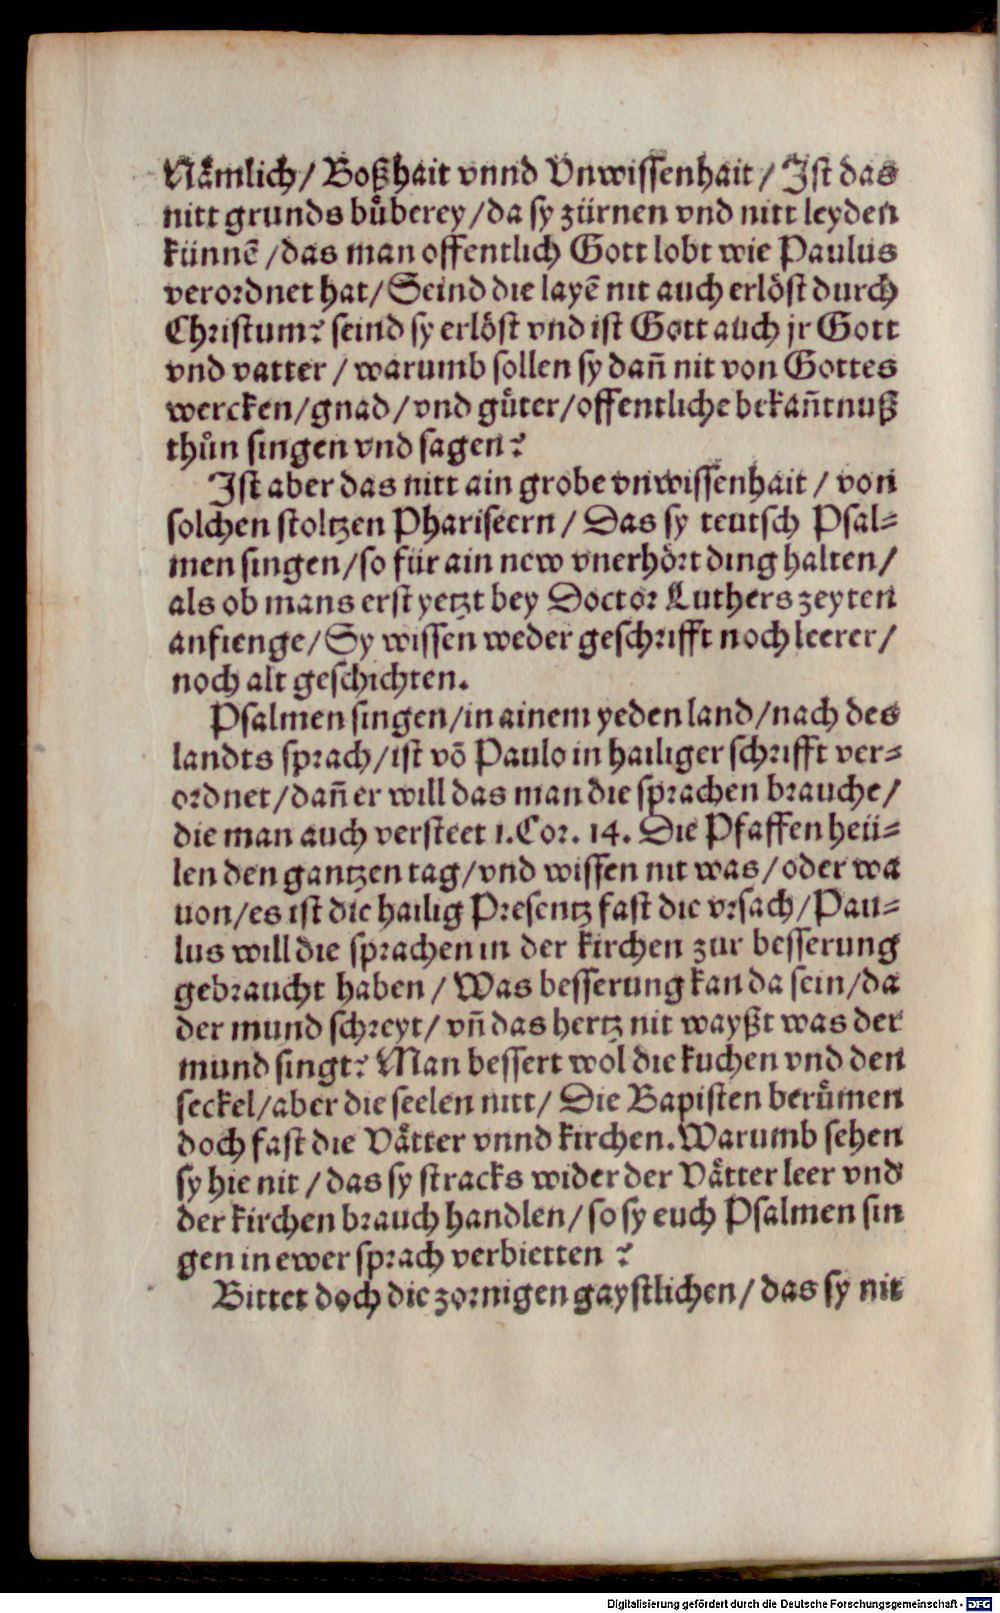 Nåmlich/ Boßhait vnnd Vnwissenhait/ Ist das
nitt grunds bůberey/da sy zürnen vnd nitt leyden
künnē/das man offentlich Gott lobt wie Paulus
verordnet hat/Seind die layē nit auch erlöst durch
Christum? seind sy erlöst vnd ist Gott auch jr Gott
vnd vatter/ warumb sollen sy dañ nit von Gottes
wercken/gnad/vnd gůter/offentliche bekañtnuß
thůn singen vnd sagen?
Ist aber das nitt ain grobe vnwissenhait/ von
solchen stoltzen Phariseern/ Das sy teutsch Psal⸗
men singen/so für ain new vnerhört ding halten/
als ob mans erst yetzt bey Doctor Luthers zeyten
anfienge/Sy wissen weder geschrifft noch leerer/
noch alt geschichten.
Psalmen singen/in ainem yeden land/nach des
landts sprach/ist vō Paulo in hailiger schrifft ver⸗
ordnet/dañ er will das man die sprachen brauche/
die man auch versteet 1.Cor. 14. Die Pfaffen heü⸗
len den gantzen tag/vnd wissen nit was/oder wa
uon/es ist die hailig Presentz fast die vrsach/Pau⸗
lus will die sprachen in der kirchen zur besserung
gebraucht haben/ Was besserung kan da sein/da
der mund schreyt/ vñ das hertz nit wayßt was der
mund singt? Man bessert wol die kuchen vnd den
seckel/aber die seelen nitt/ Die Bapisten berůmen
doch fast die Våtter vnnd kirchen. Warumb sehen
sy hie nit/das sy stracks wider der Våtter leer vnd
der kirchen brauch handlen/so sy euch Psalmen sin
gen in ewer sprach verbietten ?
Bittet doch die zornigen gaystlichen/ das sy nit
Digitalisierung gefördert durch die Deutsche Forschungsgemeinschaft - DFG